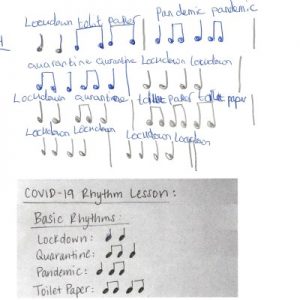 Lockdown toilt paper Pandemic pandemic
quarantine Quarantine Lockdown Lockdown
Lockdown quarantine toilet paper toilet paper
Lockdown Lockdown Lockdown Lockdown
COVID-19 Rhythm Lesson:
Basic Rhythms:
Lockdown:
Quarantine:
Pandemic:
Toilet Paper: